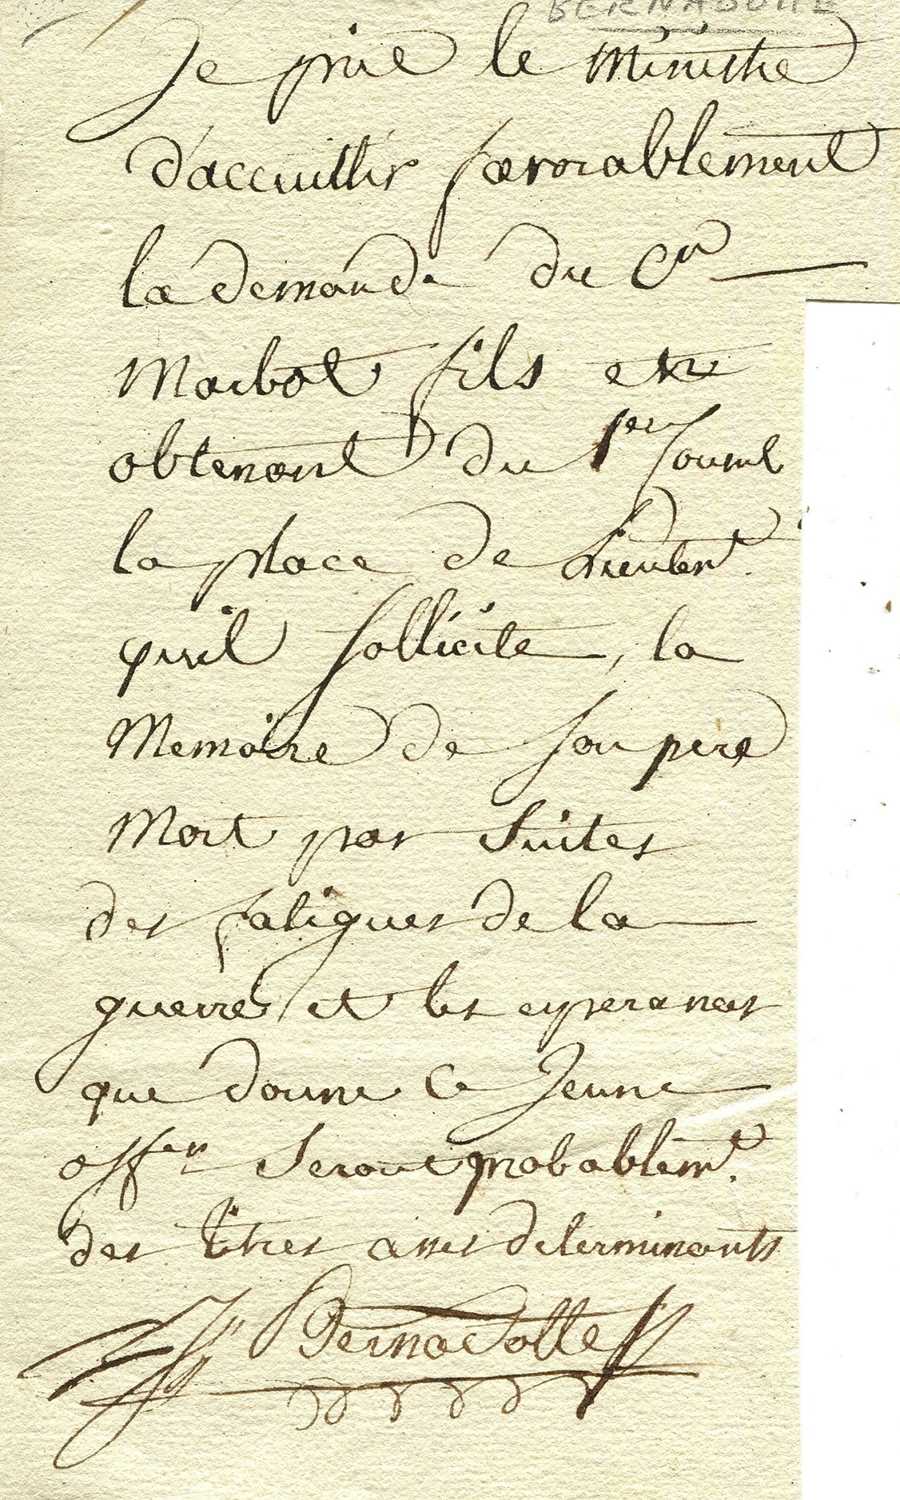 BERNADOTTE
Je prie le Ministre
d'accuillir favorablement
la demande du Cen
Marbot fils en
obtenant du 1er Consul
la place de Lieutent.
qu'il sollicite, la
Memoire de son pere
Mort par Suites
des fatigues de la
guerre et les esperances
que donne ce Jeune
offer Seront probablemt.
des titres assés determinants
J Bernadotte